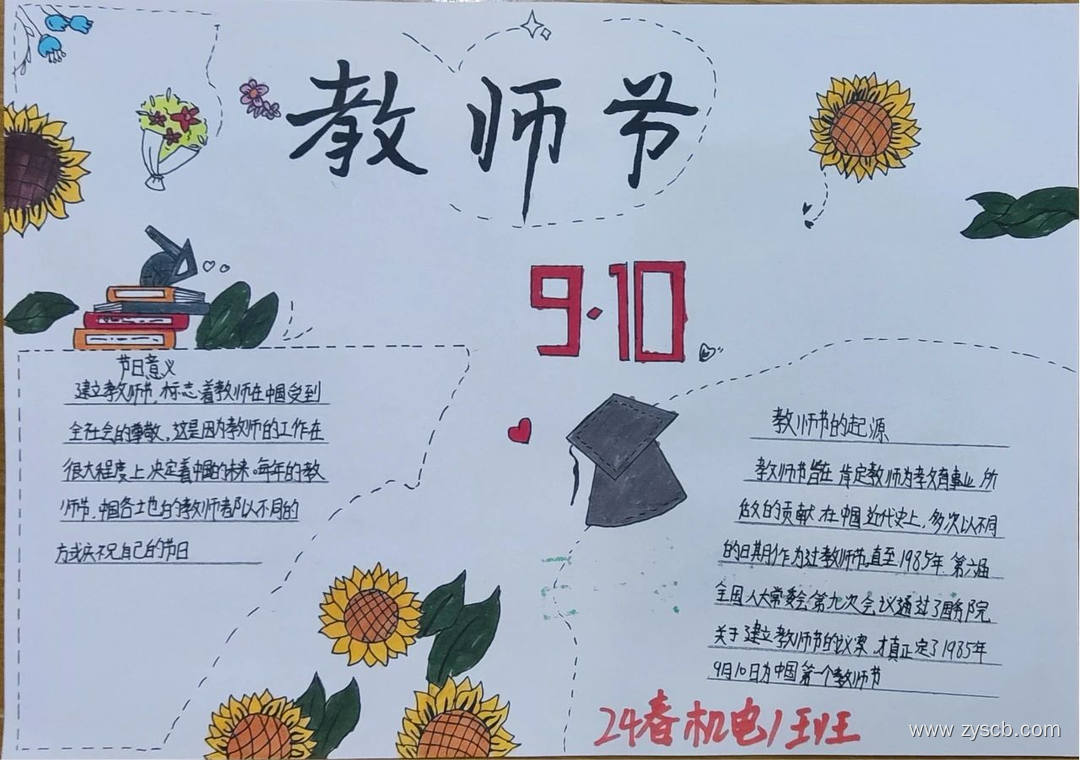 教师节
9·10
节日意义
建立教师节,标志着教师在中国受到
全社会的尊敬,这是因为教师的工作在
很大程度上决定着中国的未来.每年的教
师节,中国各土地方的教师都以不同的
方式庆祝自己的节日
教师节的起源
教师节旨在肯定教师为孝文育事业所
做的贡献.在中国近代史上,多次以不同
的日期作为过教师节.直至1985年.第六届
全国人大常委会第九次会议通过了国务院
关于建立教师节的议案,才真正定了1985年
9月10日为中国第一个教师节
24春机电1班
www.zyscb.com